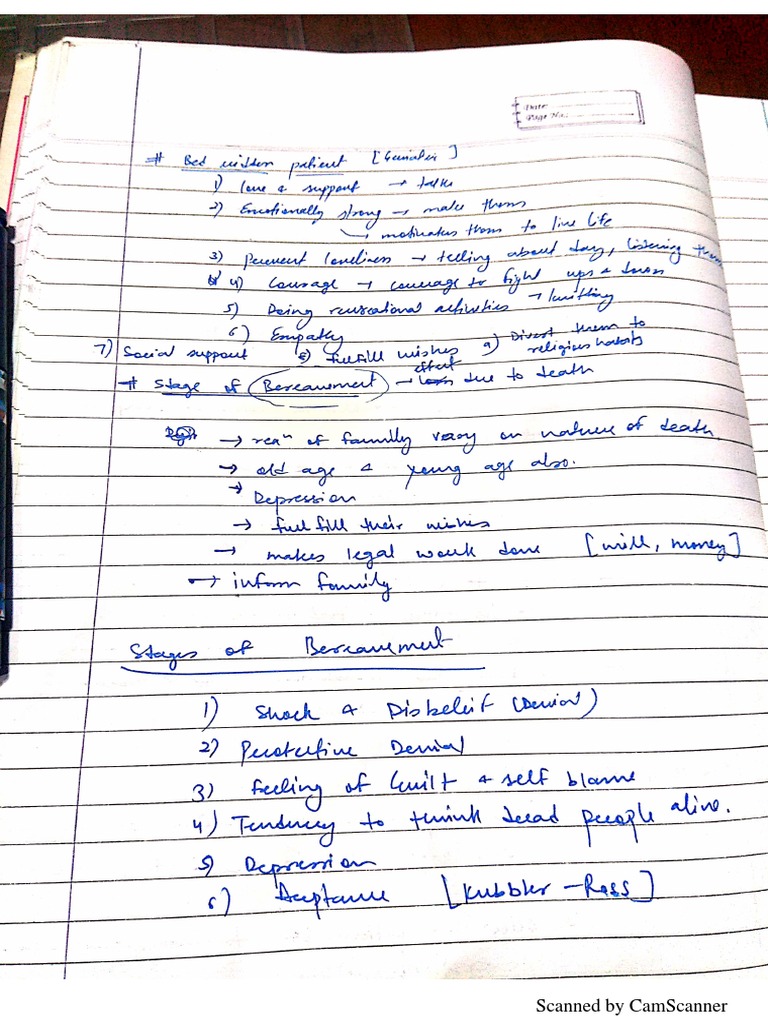 Date:
Page No.:
# Bed ridden patient [Geriatric]
1) love & support → talk
2) Emotionally strong → make them
↳ motivates them to live life
3) Prevent loneliness → telling about day, listening them
4) Courage → courage to fight ups & downs
5) Doing recreational activities → knitting
6) Empathy
7) Social support 8) fulfill wishes 9) Divert them to religious habits
# Stage of Bereavement → effect due to death
→ reaⁿ of family vary on nature of death
→ old age & young age also.
→ Depression
→ full fill their wishes
→ makes legal work done [will, money]
→ inform family
Stages of Bereavement
1) Shock & Disbelief (Denial)
2) Protective Denial
3) Feeling of Guilt & self blame
4) Tendency to think dead people alive.
5) Depression
6) Acceptance [Kubbler-Ross]
Scanned by CamScanner